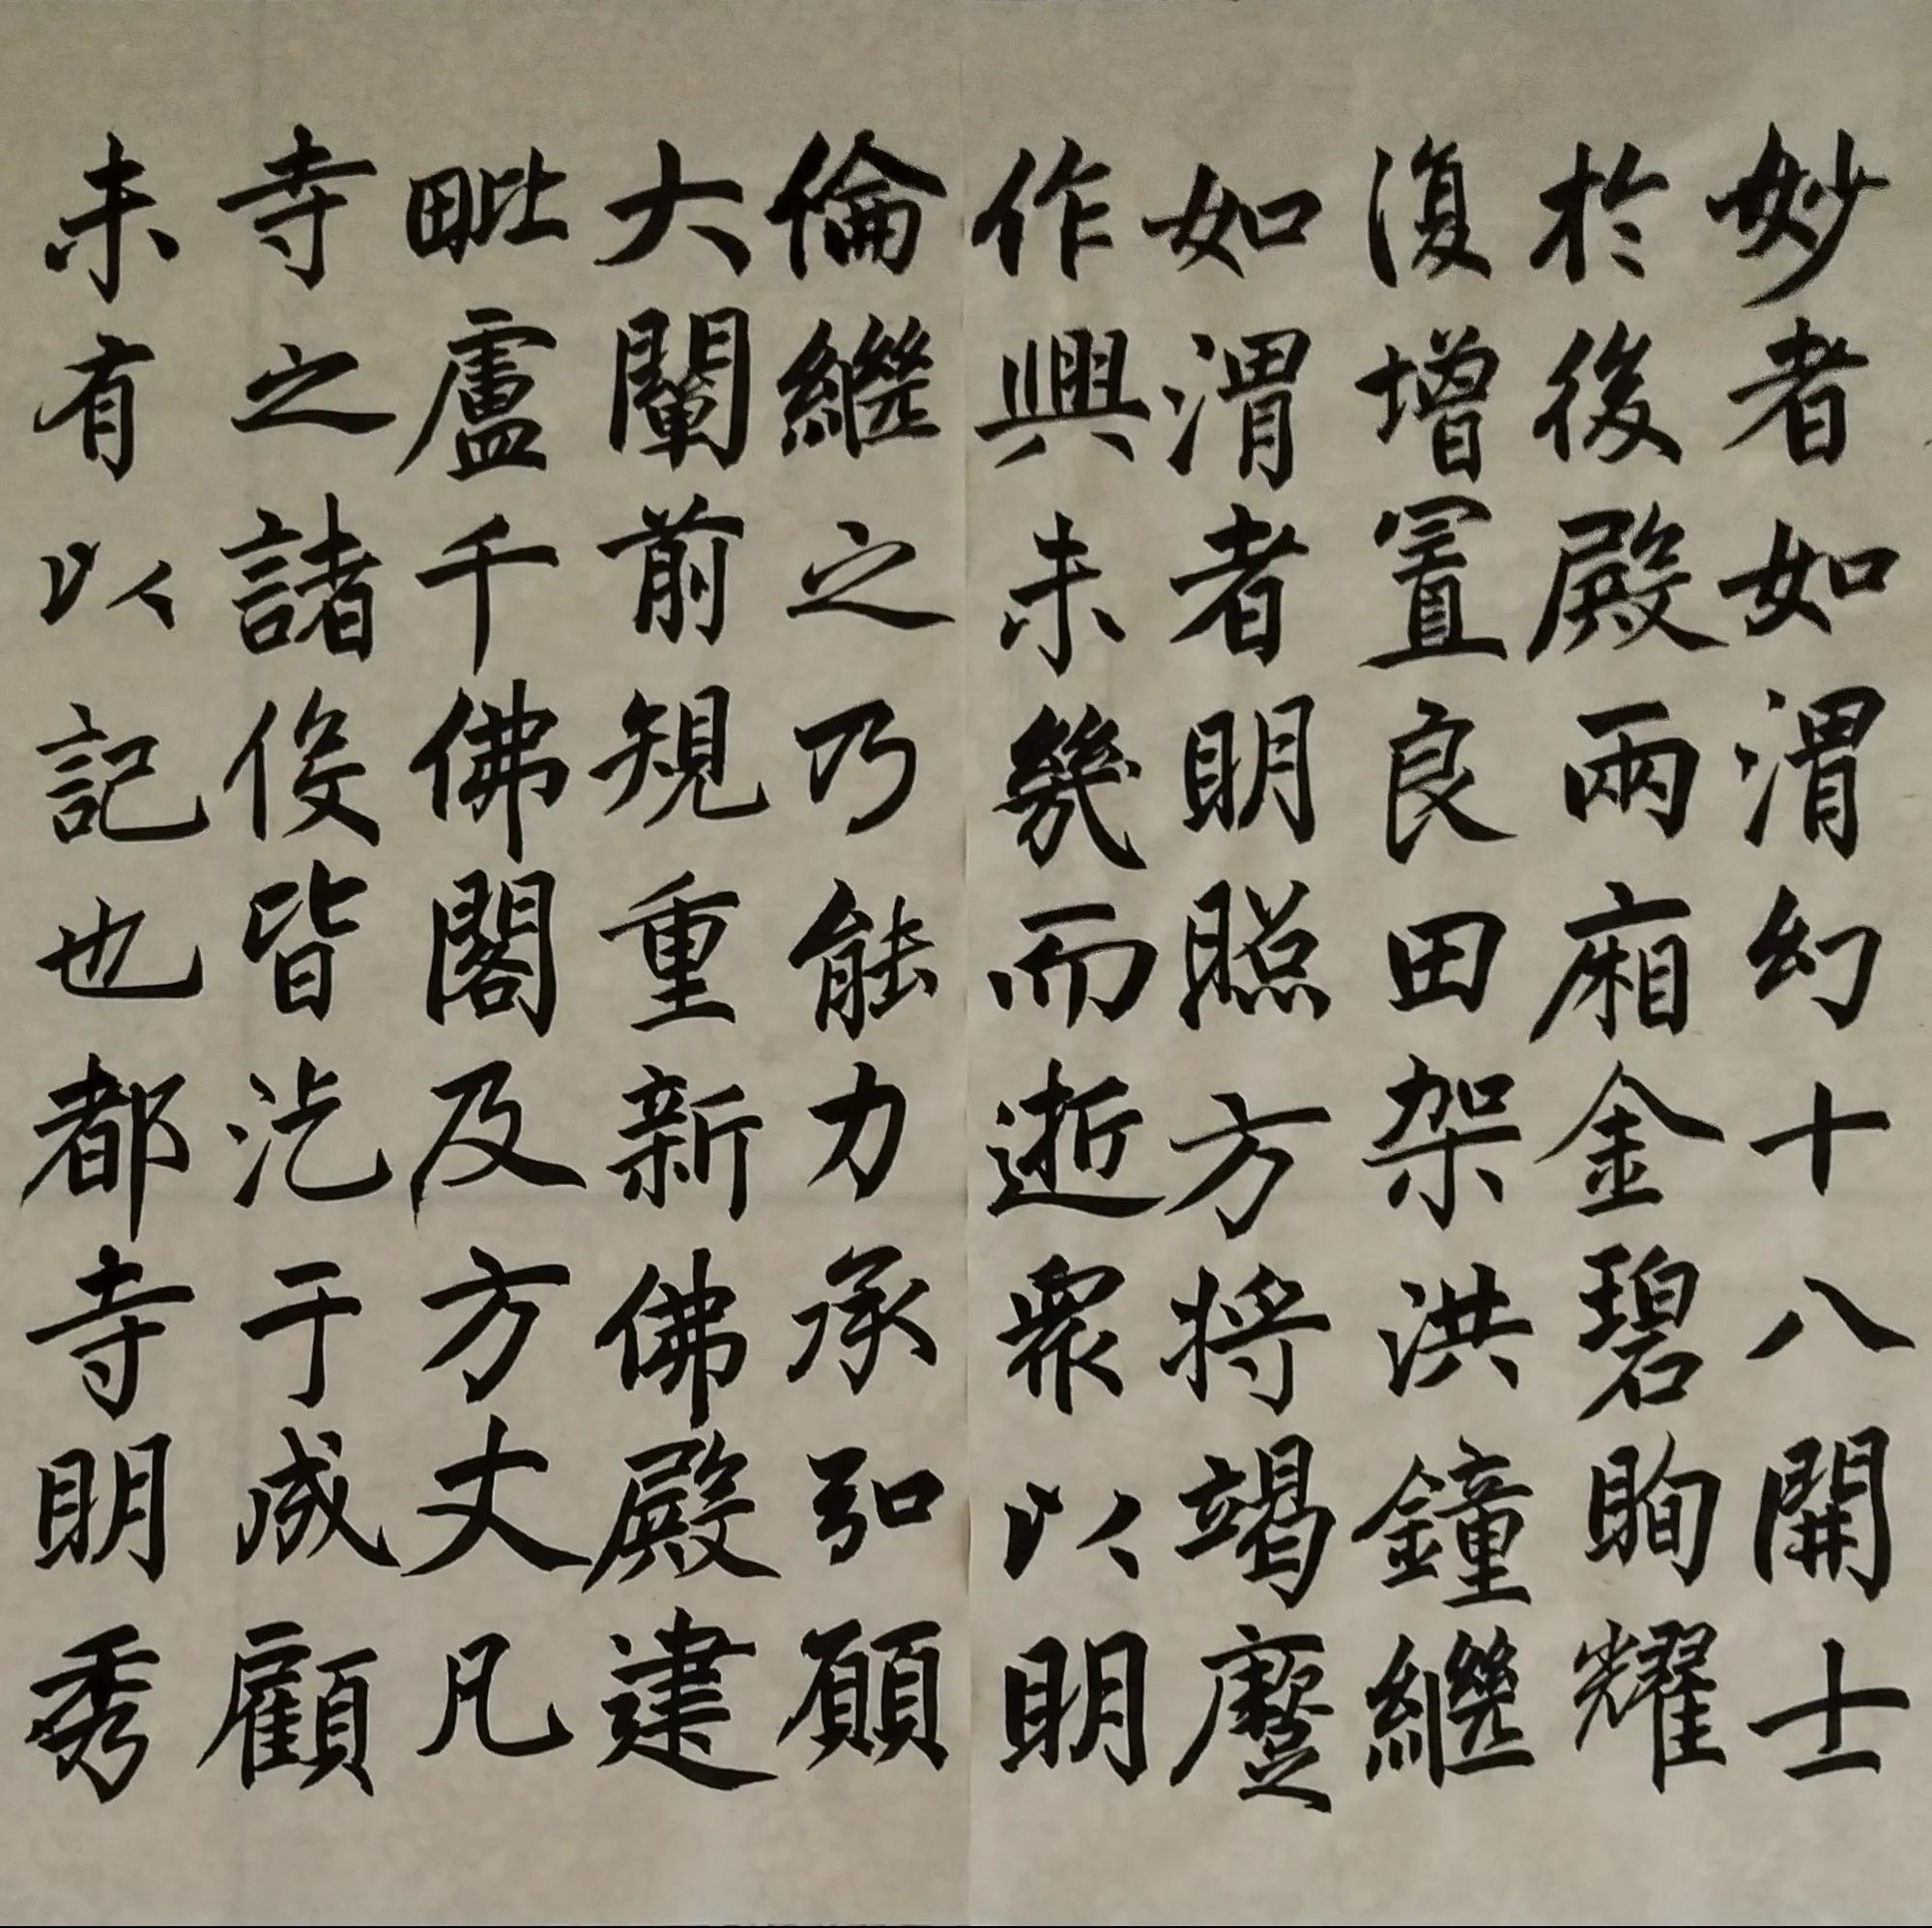 妙者如渭幻十八開士
於後殿兩廂金碧晌耀
復增置良田架洪鐘繼
如渭者明照方將竭蹷
作興未幾而逝眾以明
倫繼之乃能力承弘願
大闡前規重新佛殿建
毗盧千佛閣及方丈凡
寺之諸役皆汔于成顧
未有以記也都寺明秀